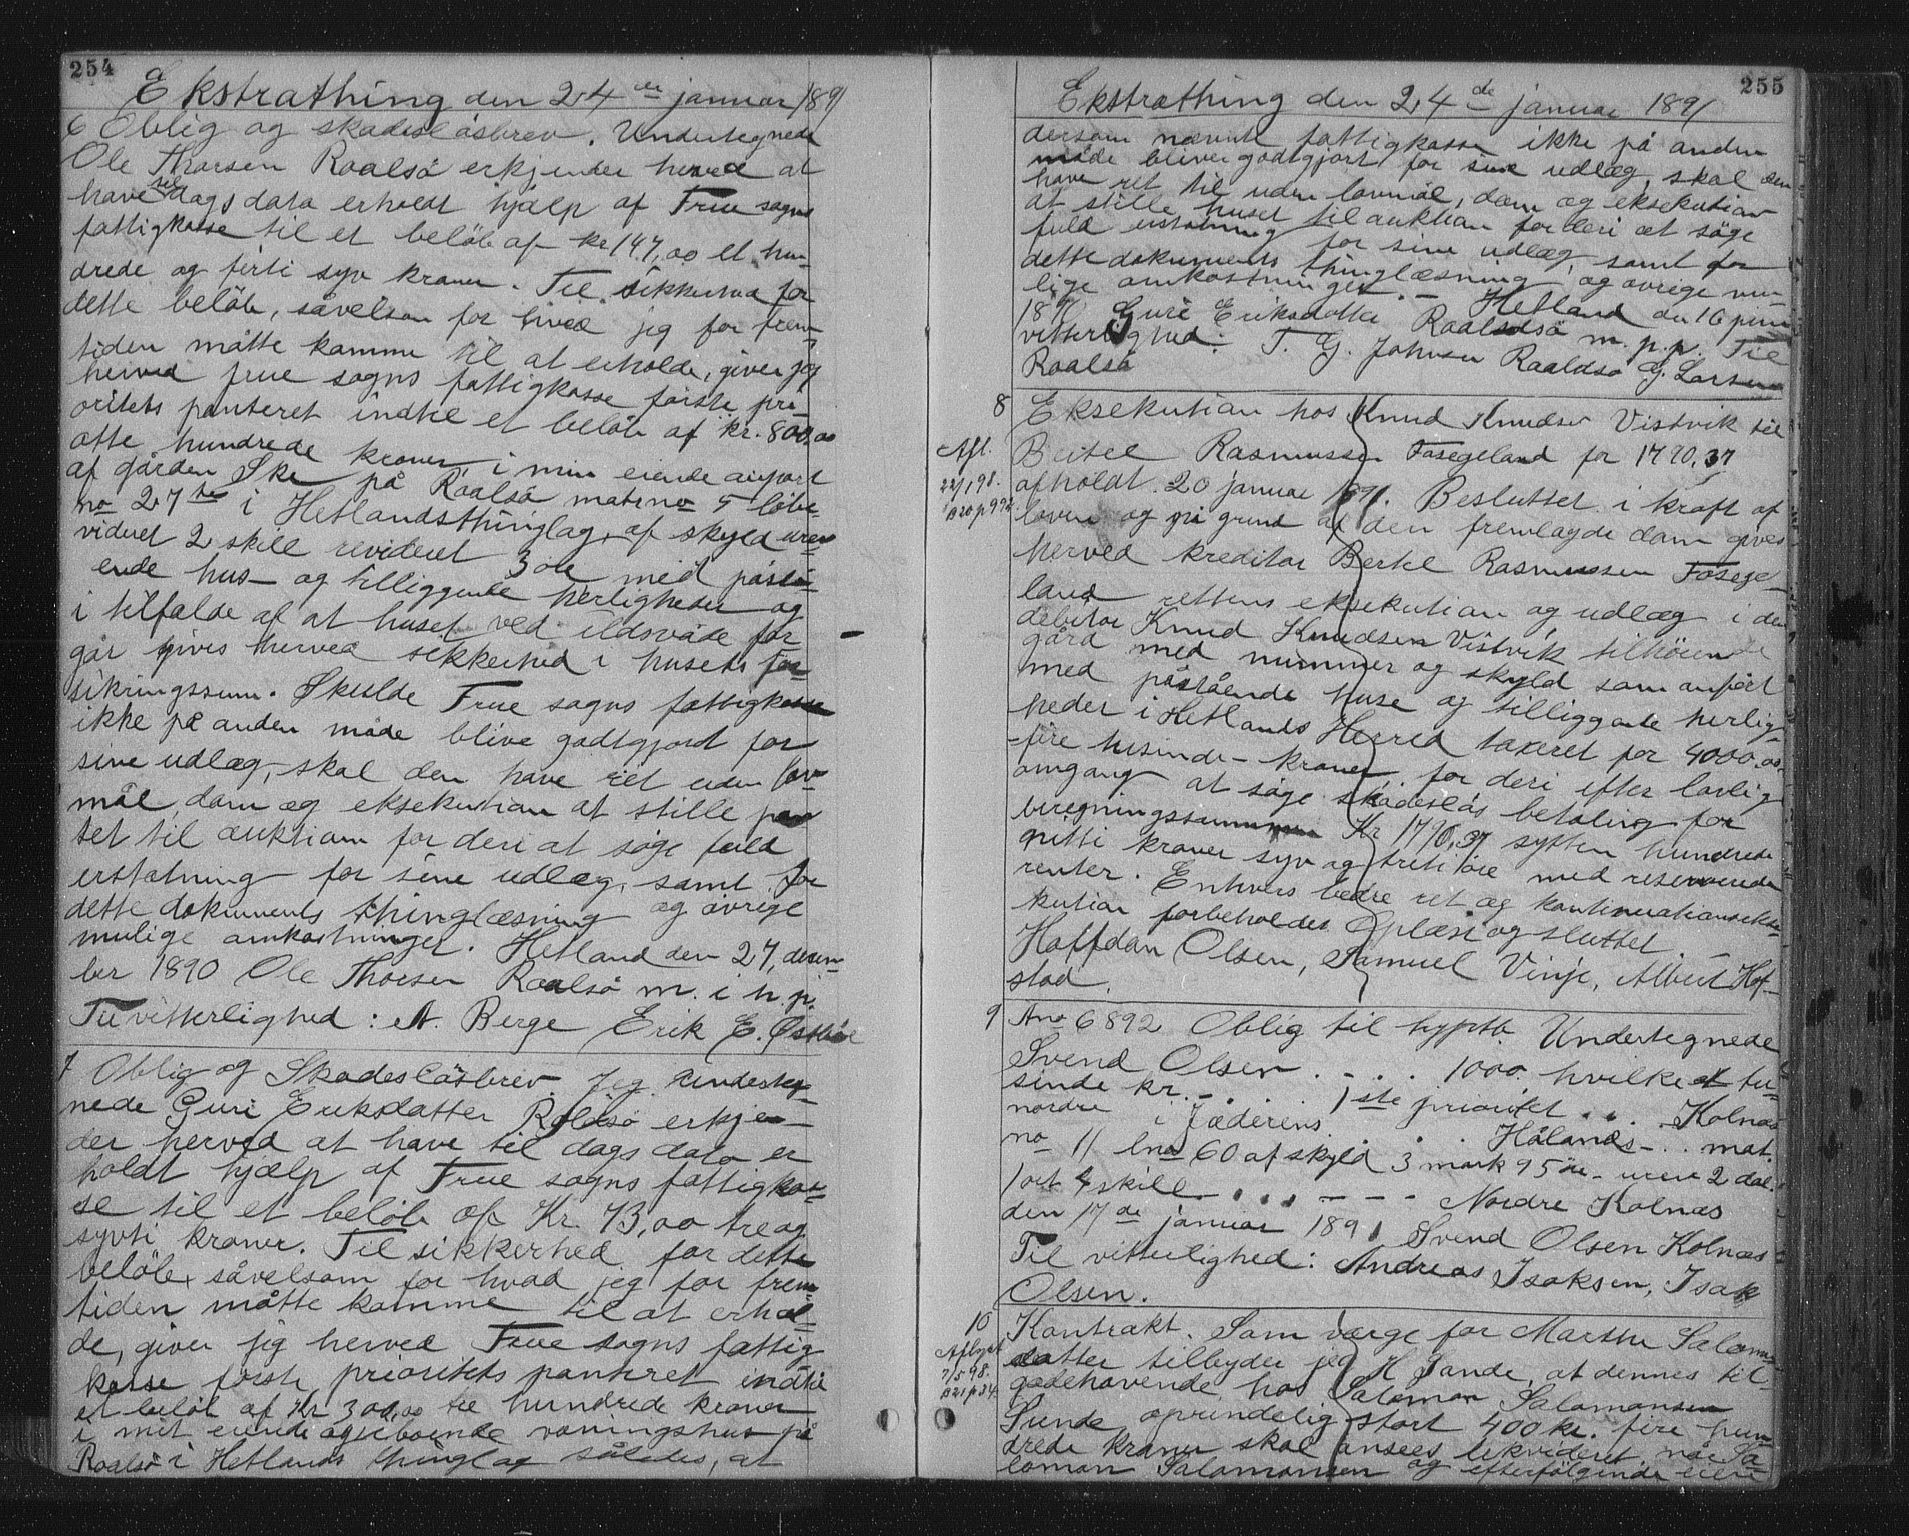 254
Ekstrathing den 24de januar 1891
6 Oblig og skadesløsbrev. Undertegnede
Ole Thorsen Roalsö erkjender herved at
have til dags dato erholdt hjælp af Frue sogns
fattigkasse til et beløb af kr 147,00 et hun-
drede og firti syv kroner. Til sikkerhed for
dette beløb, såvelsom for hved jeg for frem-
tiden måtte komme til at erholde, giver jeg
herved Frue sogns fattigkasse første pri-
oritets panteret indtil et beløb af kr. 800,00
otte hundrede kroner i min eiende anpart
af gården Ske på Roalsö matrno 5 løbe-
no 27 i Hetlandsthinglag, af skyld urev-
videret 2 skill revideret 3 øre med påstå-
ende hus- og tilliggende herligheder og
i tilfælde af at huset ved ildsvåde for
går gives herved sikkerhed i husets for
sikringssum. Skulde Frue sogns fattigkasse
ikke på anden måde blive godtgjord for
sine udlæg, skal den have ret uden lov-
mål, dom og eksekution at stille pan
tet til auktion for deri at søge fuld
erstatning for sine udlæg, samt for
dette dokuments thinglæsning og øvrige
mulige omkostninger. Hetland den 27, decem-
ber 1890 Ole Thorsen Roalsö m. i h. p.
Til vitterlighed: A. Berge Erik E.
7 Oblig og Skadesløsbrev. Jeg underteg-
nede Guri Eriksdatter Roldsö erkjen-
der herved at have til dags dato er
holdt hjælp af Frue sogns fattigkas-
se til et beløb af Kr. 73,00 tre og
sytti kroner. Til sikkerhed for dette
beløb, såvelsom for hvad jeg for frem-
tiden måtte komme til at erhol-
de, giver jeg herved Frue sogns fattig
kasse første prioritets panteret indtil
et beløb af Kr 300,00 tre hundrede kroner
i mit eiende og iboende våningshus på
Roalsö i Hetlands thinglag således, at
255
Ekstrathing den 24de januar 1891
dersom nævnte fattigkasse ikke på anden
måde bliver godtgjort for sine udlæg, skal den
have ret til uden lovmål, dom og eksekution
at stille huset til auktion for deri at søge
fuld erstatning for sine udlæg, samt for
dette dokuments thinglæsning og øvrige mu-
lige omkostninger. - Hetland den 16 januar
1891 Guri Eriksdatter Roaldsö m. p. p. Til
vitterlighed: T. G. Johnsen Roaldsö G. Larsen
Roalsö
8 Eksekution hos Knud Knudsen Vistvik til
Afl.
22/1 98.
B20p992
Bertel Rasmussen Fosegeland for 1790,37
afholdt 20 januar 1891. Besluttet i kraft af
loven og på grund af den fremlagde dom gives
herved kreditor Bertel Rasmussen Fosege-
land rettens eksekution og udlæg i den
debitor Knud Knudsen Vistvik tilhørende
gård med nummer og skyld som anført
med påstående huse og tilliggende herlig-
heder i Hetlands Herred taxeret for 4000.00
-fire tusinde- kroner, for deri efter lovlig
omgang at søge skadesløs betaling for
beregningssummen Kr 1790,37 sytten hundrede
nitti kroner syv og treti øre med reserverede
renter. Enhvers bedre ret og kontinuationsekse-
kution forbeholdes. Oplæst og sluttet.
Haffdan Olsen, Samuel Vinje, Albert Hof-
stad.
9 Ano 6892 Oblig til hypth. Undertegnede
Svend Olsen . - . . 1000. hvilke et tu-
sinde kr. - . . . 1ste prioritet . . . Kolnæs
nordre i Jæderens . Hålands - . . mat.
no 11 lno 60 af skyld 3 mark 95 øre - urev 2 dal.
1 ort 4 skill - . . . - - - Nordre Kolnæs
den 17de januar 1891 Svend Olsen Kolnæs
Til vitterlighed: Andreas Isaksen, Isak
Olsen.
10 Kontrakt. Som værge for Marthe Saloms
Aflyst
7/5 98.
B21p34.
datter tilbyder jeg H Sande, at dennes til-
godehavende hos Salomon Salomonsen
Sunde oprindelig stort 400 kr. fire hun-
drede kroner skal ansees likvideret når Sa-
lomon Salomonsen og efterfølgende eiere